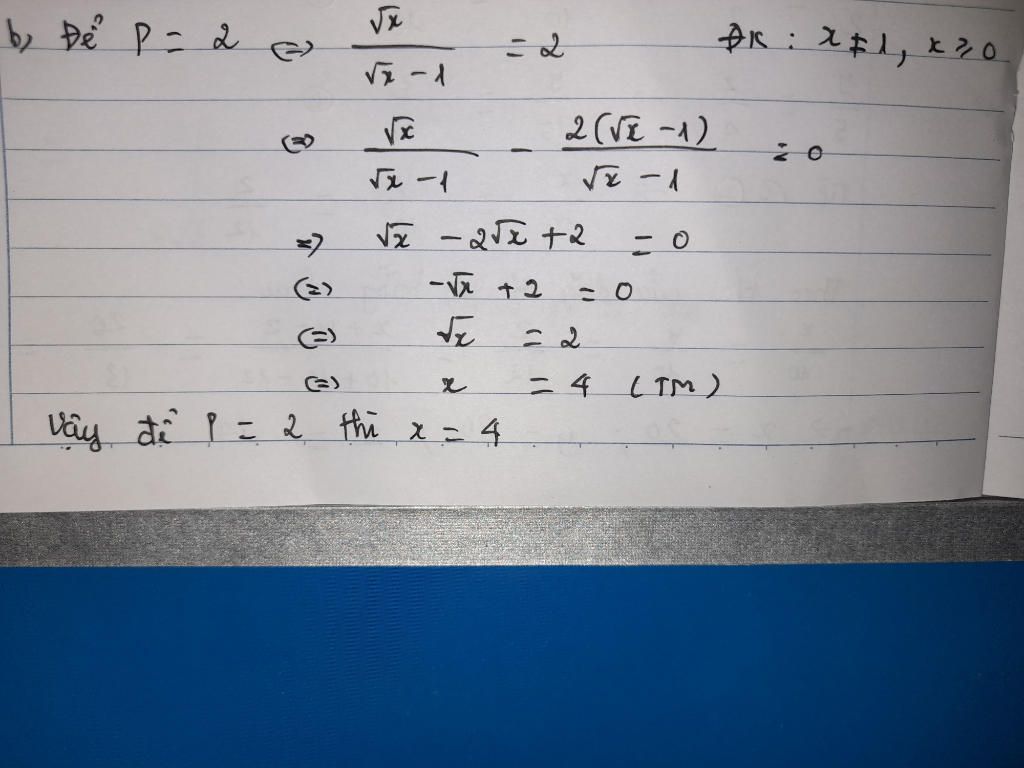 b, Để P = 2 <=> √x / (√x - 1) = 2 ĐK : x ≠ 1, x ≥ 0
<=> √x / (√x - 1) - 2(√x - 1) / (√x - 1) = 0
=> √x - 2√x + 2 = 0
<=> -√x + 2 = 0
<=> √x = 2
<=> x = 4 (TM)
Vậy để P = 2 thì x = 4